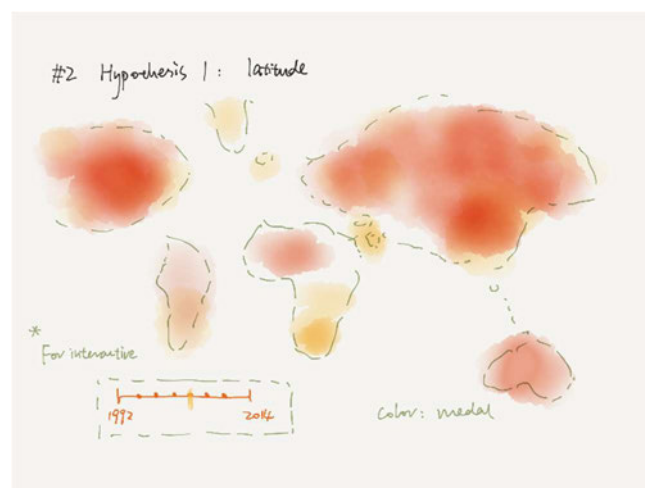 #2 Hypothesis 1: latitude
*
For interactive
1992 2014
color: medal